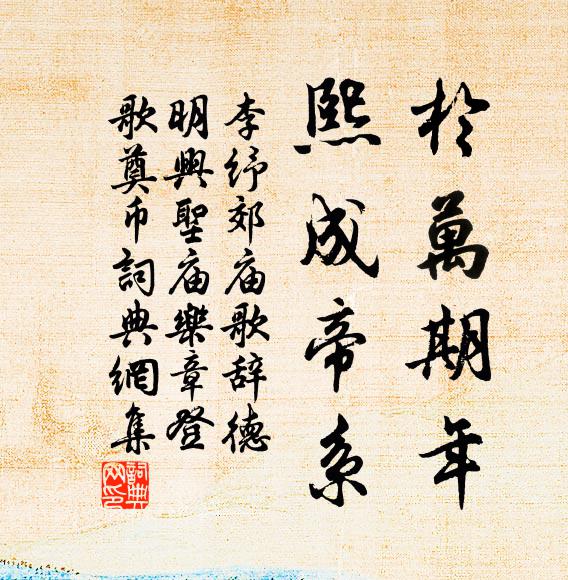 於萬期年
熙成帝系
李紓郊庙歌辞德
明興聖庙樂章登
歌奠币詞典網集
詞典網印